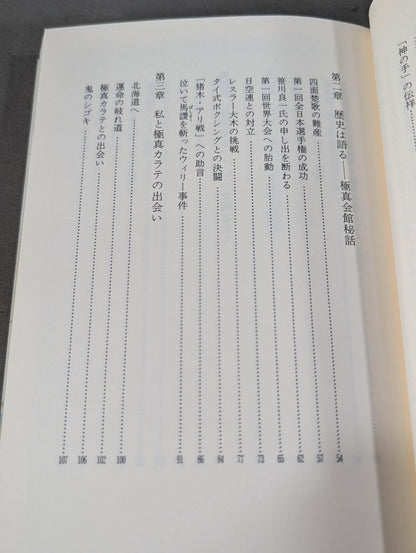 「神の手」の伝祥
第二章 歴史は語る――極真会館秘話
四面楚歌の難産 54
第一回全日本選手権の成功 57
笹川良一氏の申し出を断わる 62
第一回世界大会への胎動 65
日空連との対立 73
レスラー大木の挑戦 77
タイ式ボクシングとの決闘 84
「猪木・アリ戦」への助言 86
泣いて馬謖を斬ったウィリー事件 91
第三章 私と極真カラテの出会い
北海道へ 100
運命の岐れ道 102
極真カラテとの出会い 106
鬼のシゴキ 107